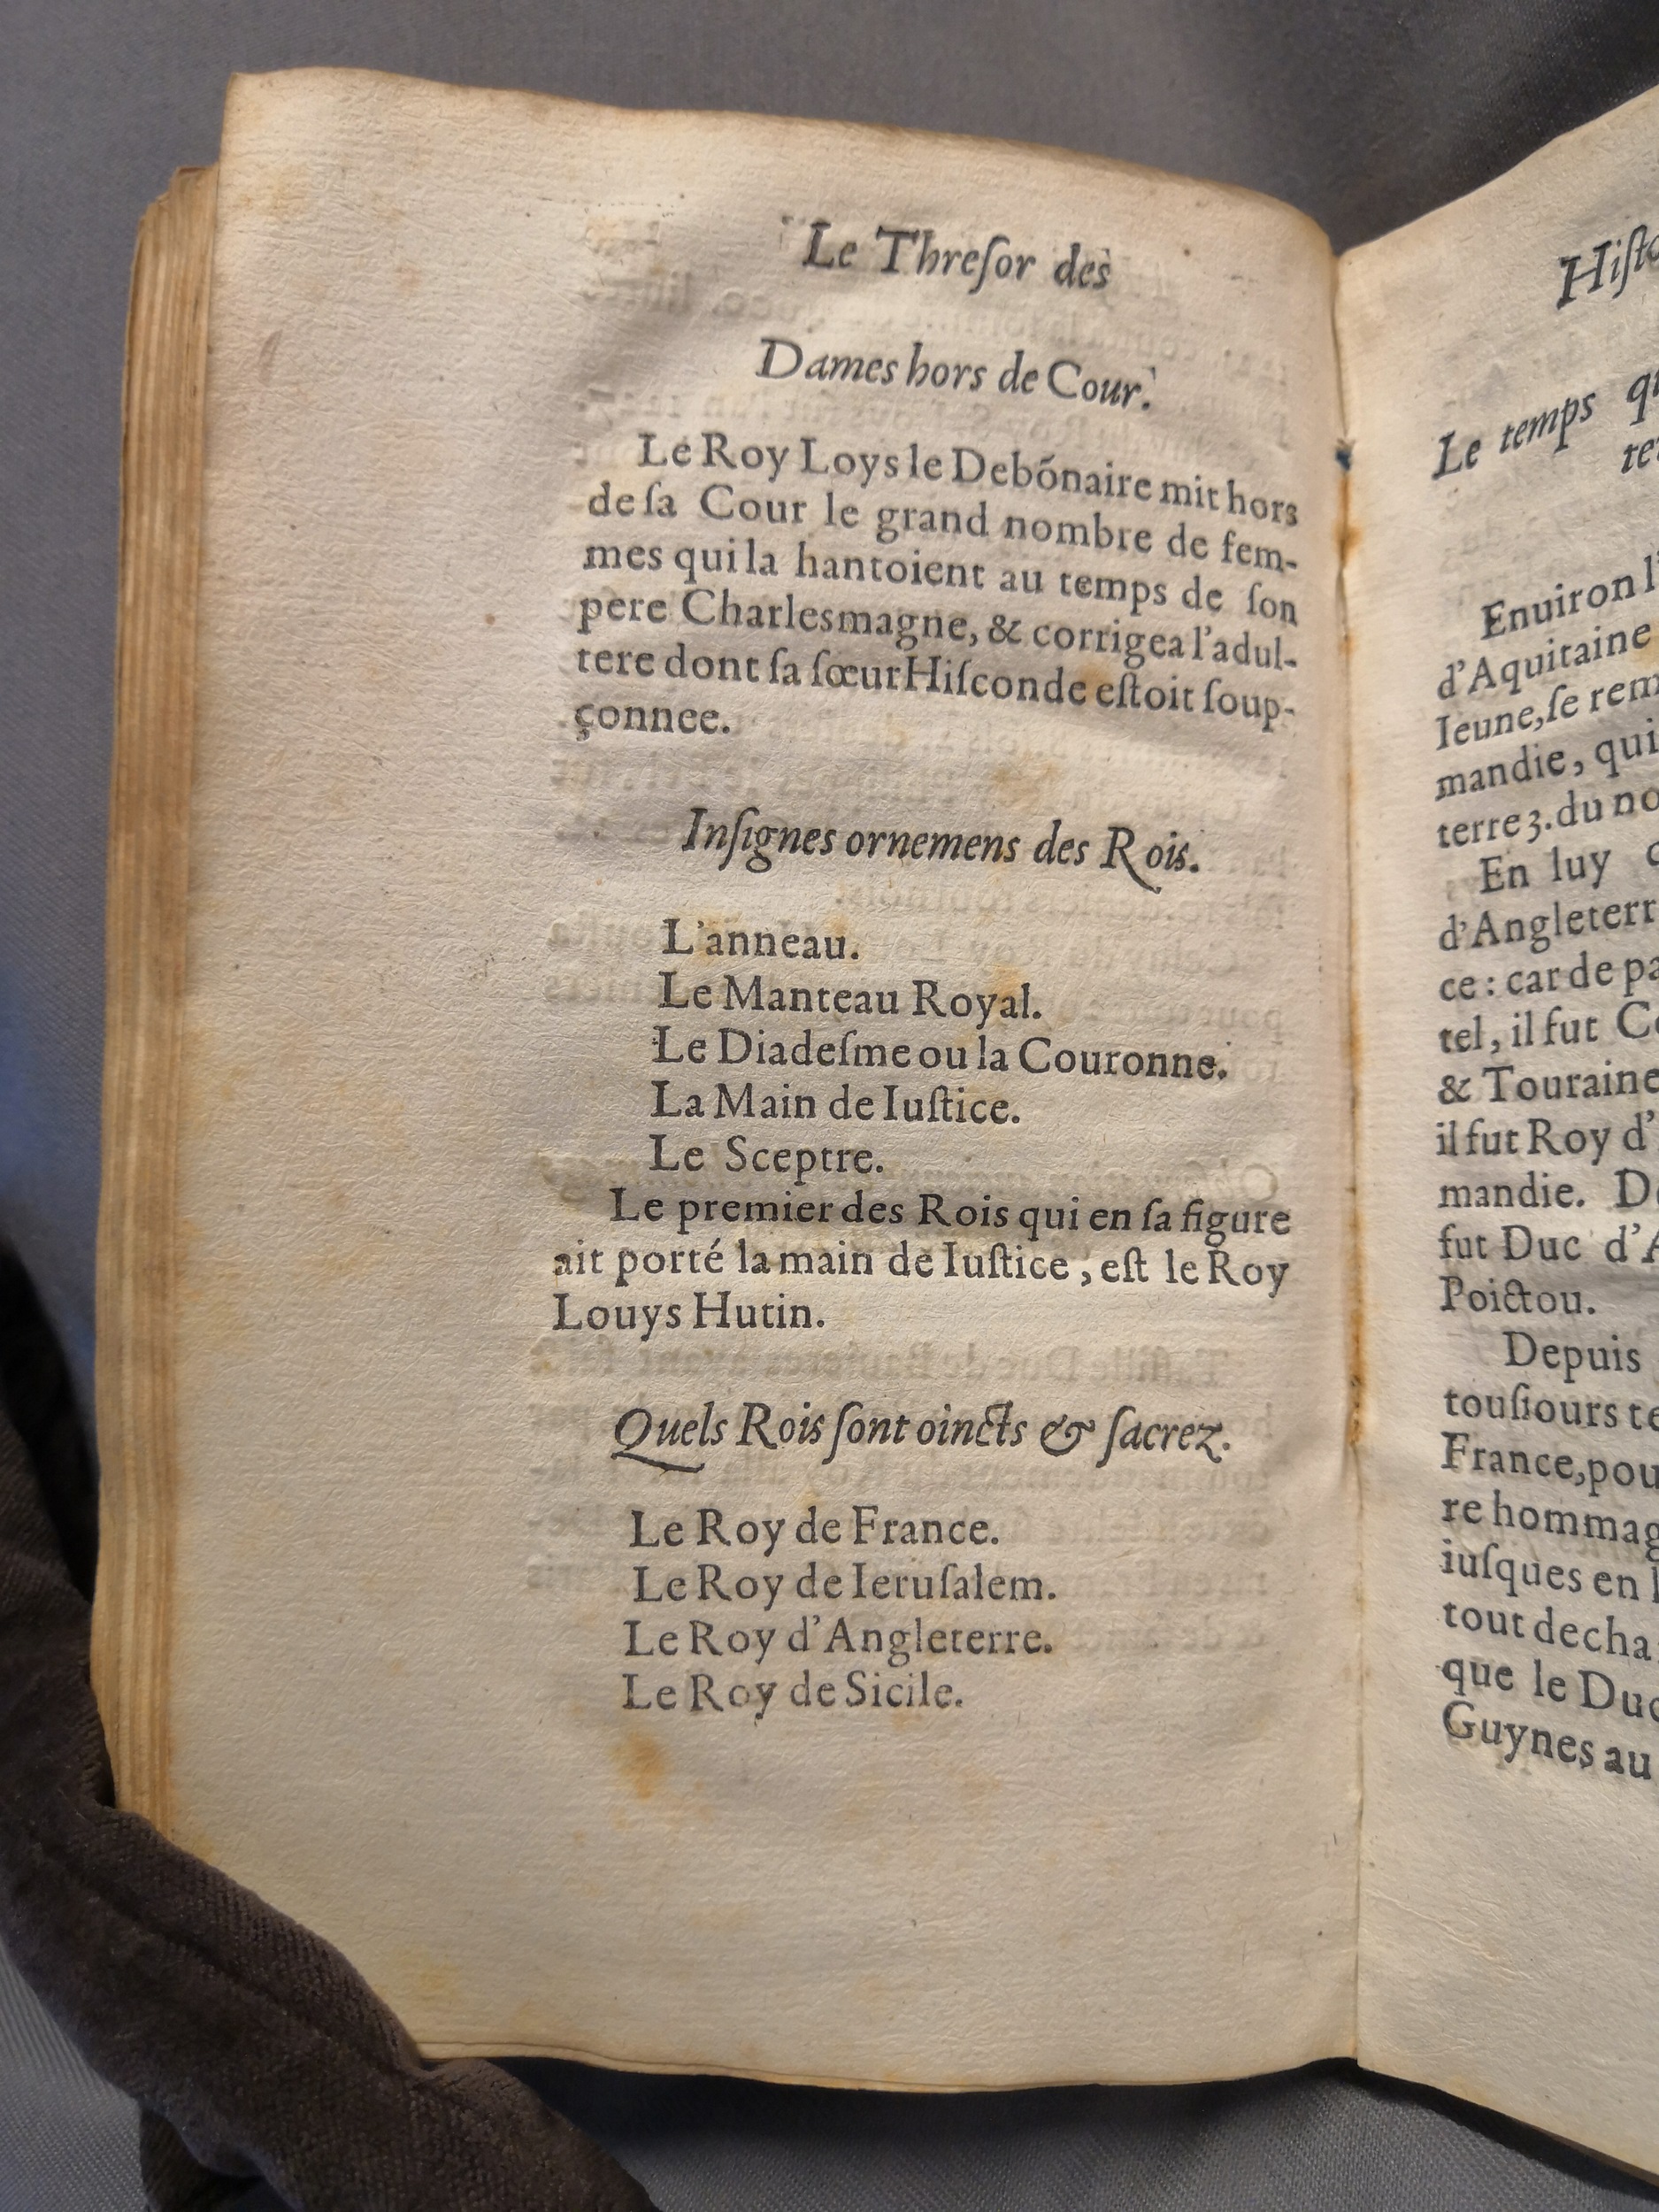 Le Threſor des
Dames hors de Cour.
Le Roy Loys le Debõnaire mit hors
de ſa Cour le grand nombre de fem-
mes qui la hantoient au temps de ſon
pere Charlesmagne, & corrigea l'adul-
tere dont ſa ſœur Hiſconde eſtoit ſoup-
çonnee.
Inſignes ornemens des Rois.
L'anneau.
Le Manteau Royal.
Le Diadeſme ou la Couronne.
La Main de Iuſtice.
Le Sceptre.
Le premier des Rois qui en ſa figure
ait porté la main de Iuſtice, eſt le Roy
Louys Hutin.
Quels Rois ſont oincts & ſacrez.
Le Roy de France.
Le Roy de Ieruſalem.
Le Roy d'Angleterre.
Le Roy de Sicile.
Le temps
Enuiron
d'Aquitaine
Ieune, ſe
mandie, qui
terre 3. du
En luy
ce: car de
tel, il fut
& Touraine
il fut Roy
mandie.
fut Duc
Poictou.
Depuis
touſiours
France,
re
iuſques en
tout
que le
Guynes au